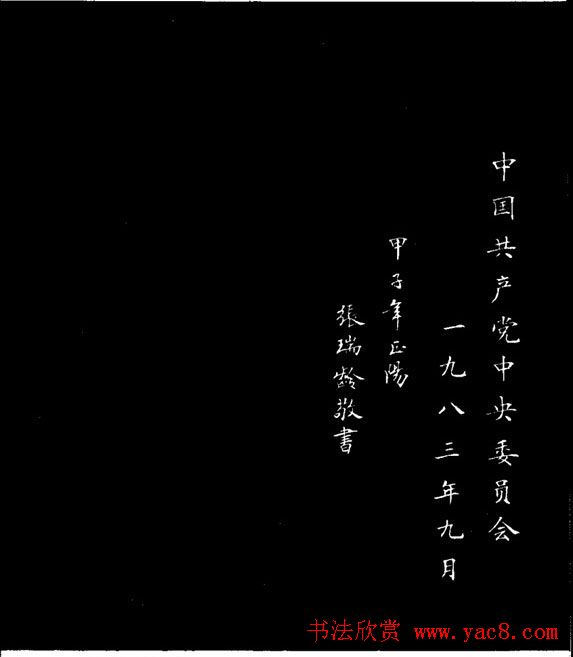 中国共产党中央委员会
一九八三年九月
甲子年正陽
張瑞齡敬書
书法欣赏 www.yac8.com